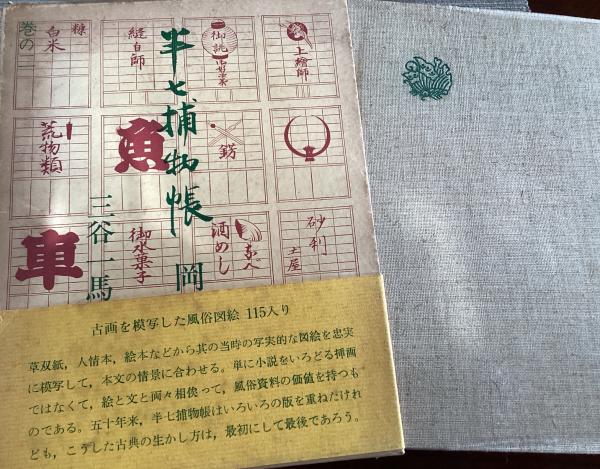 巻の二
半七捕物帳
岡
三谷一馬
糠
白米
縫白師
御誂
上繪師
荒物類
魚
錺
車
御水菓子
酒めし
なべ
砂利
土屋
古画を模写した風俗図絵 115入り
草双紙，人情本，絵本などから其の当時の写実的な図絵を忠実
に模写して，本文の情景に合わせる。単に小説をいろどる挿画
ではなくて，絵と文と両々相俟って，風俗資料の価値を持つも
のである。五十年来，半七捕物帳はいろいろの版を重ねたけれ
ども，こうした古典の生かし方は，最初にして最後であろう。